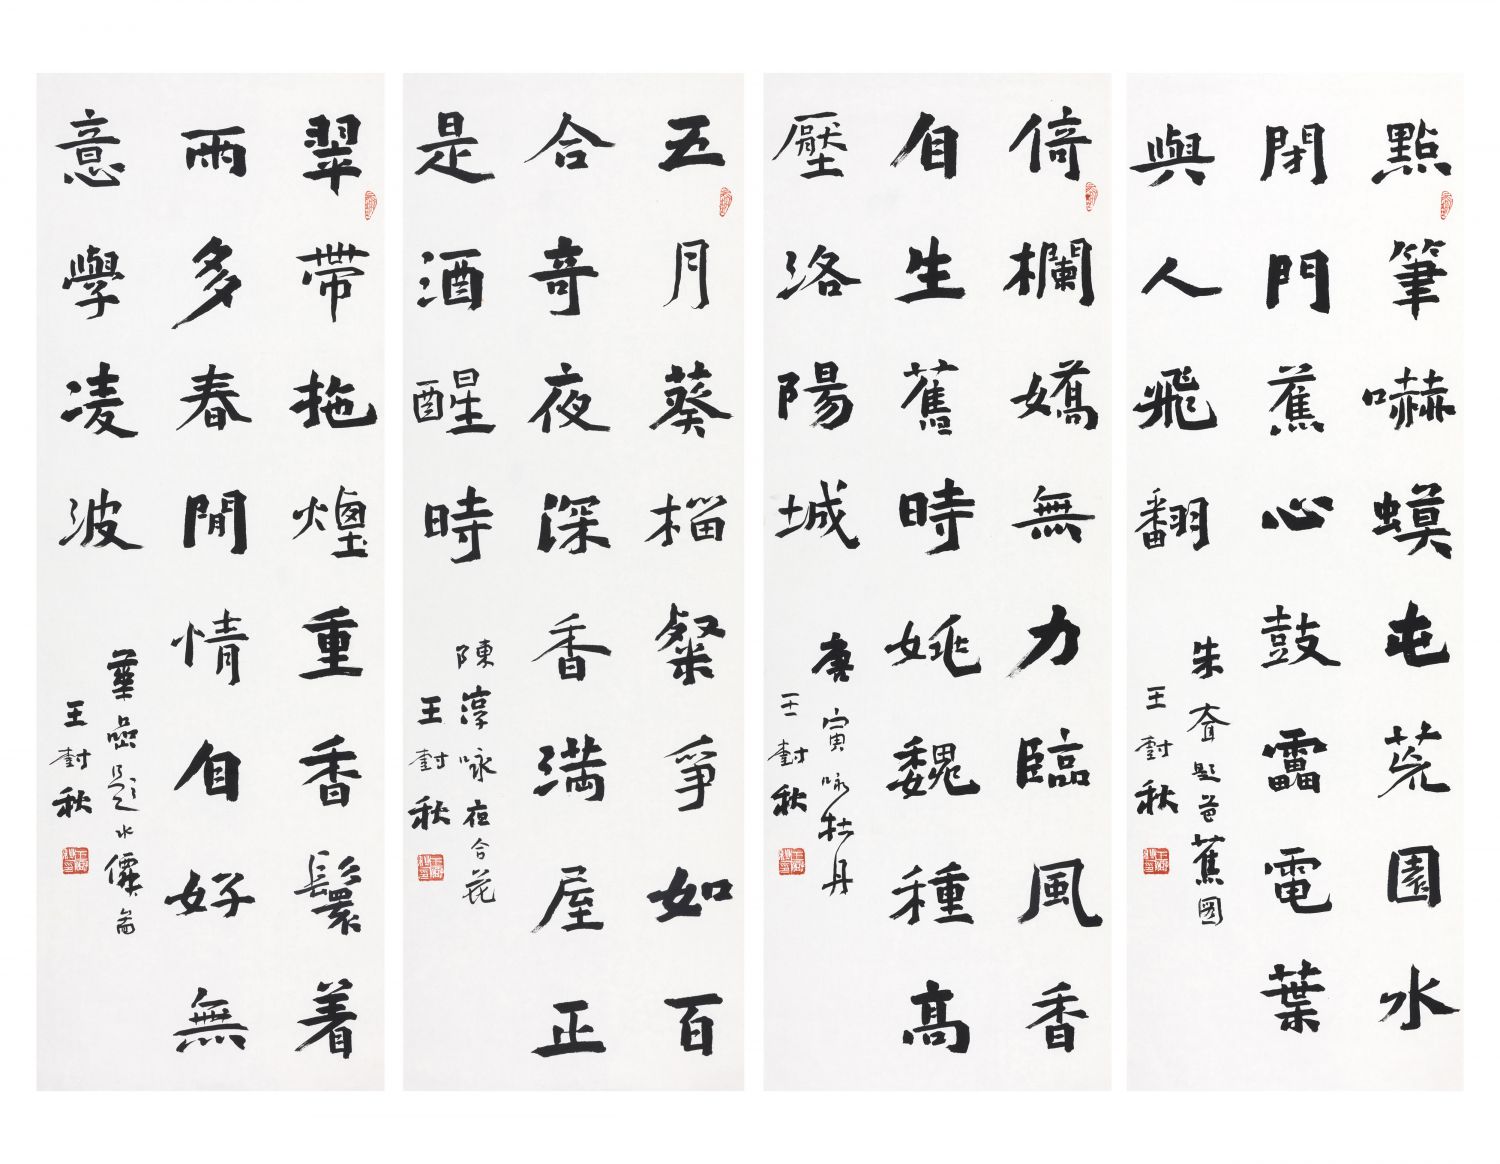 點筆嚇蟆屯荒園水
閉門蕉心鼓靁電葉
與人飛翻
朱耷題芭蕉圖
王封秋
倚欄嬌無力臨風香
自生舊時姚魏種高
壓洛陽城
唐寅咏牡丹
王封秋
五月葵榴粲爭如百
合奇夜深香満屋正
是酒醒時
陳淳咏夜合花
王封秋
翠帶拖煙重香鬟着
雨多春閒情自好無
意學凌波
華喦題水僊
王封秋